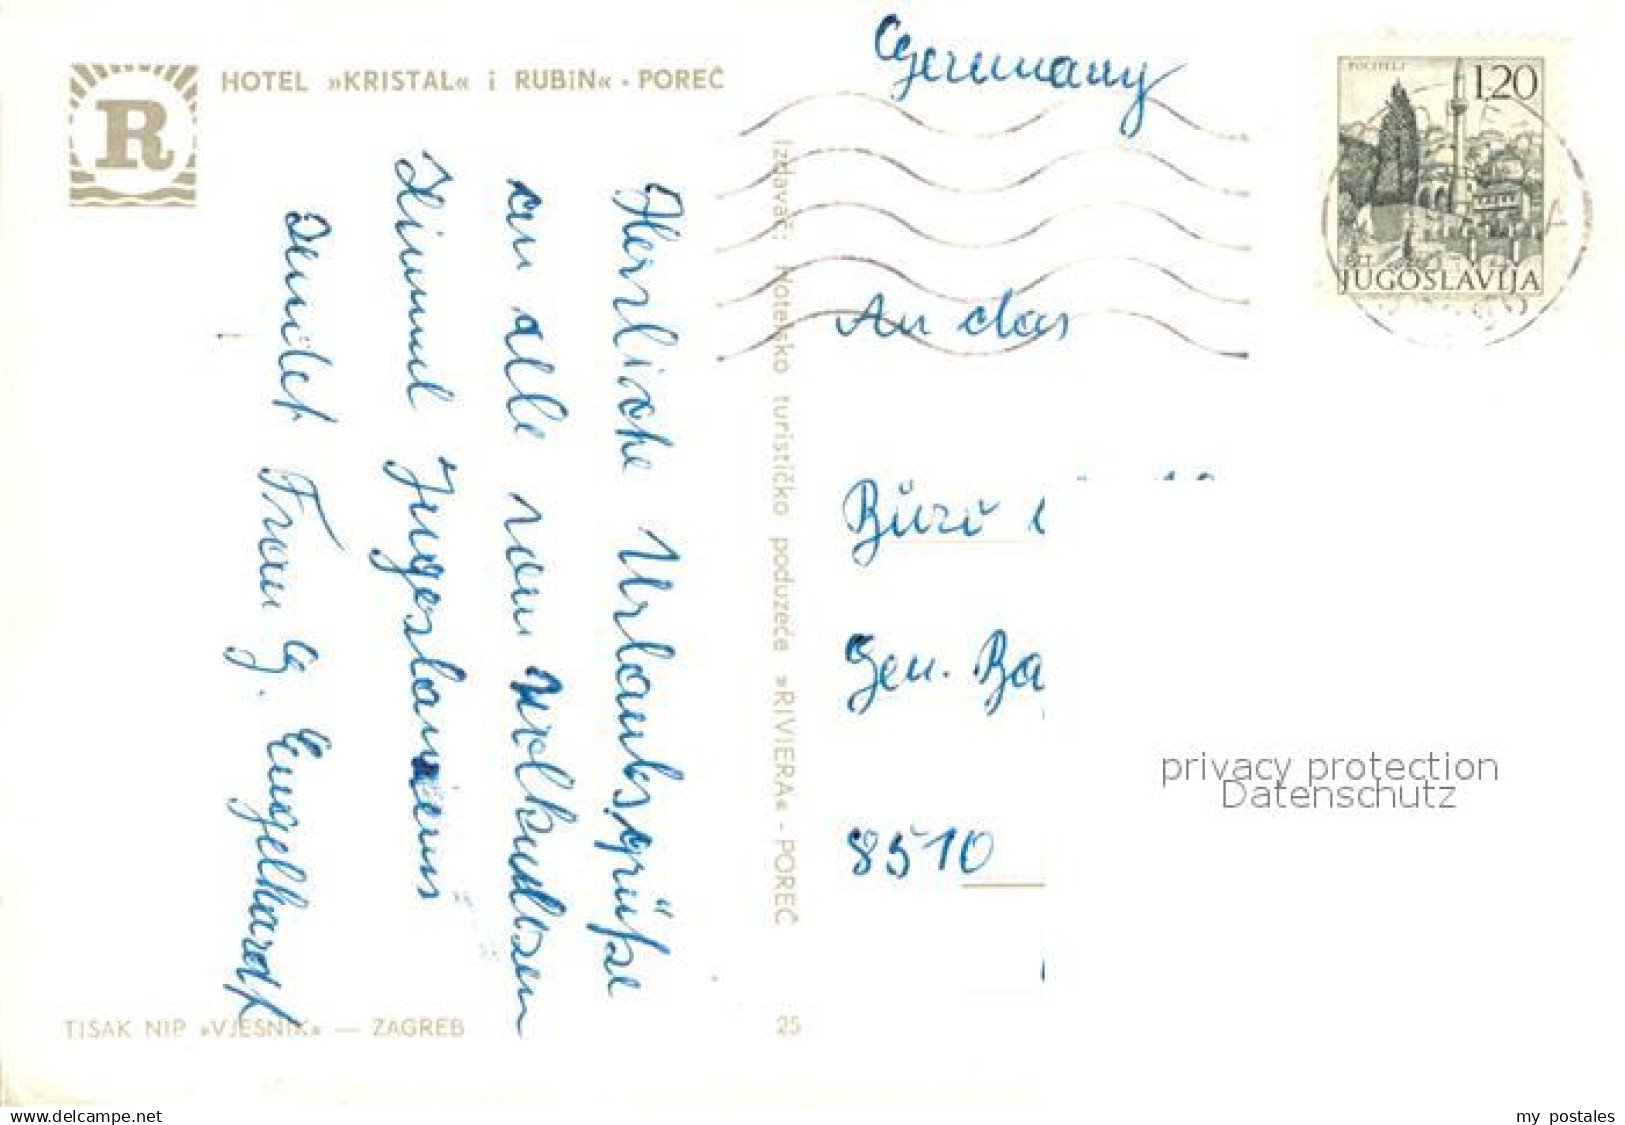 HOTEL »KRISTAL« i RUBIN« - POREČ
R
Germany
POCITELJ
1,20
PTT
JUGOSLAVIJA
Herrliche Urlaubsgrüße
an alle vom wolkenlosen
Himmel Jugoslawiens
sendet Frau G. Engelhardt
Izdavač: Hotelsko turističko poduzeće »RIVIERA« - POREČ
An das
Büro
Gen. Ba
8510
privacy protection
Datenschutz
TISAK NIP »VJESNIK« — ZAGREB
25
www.delcampe.net
my postales